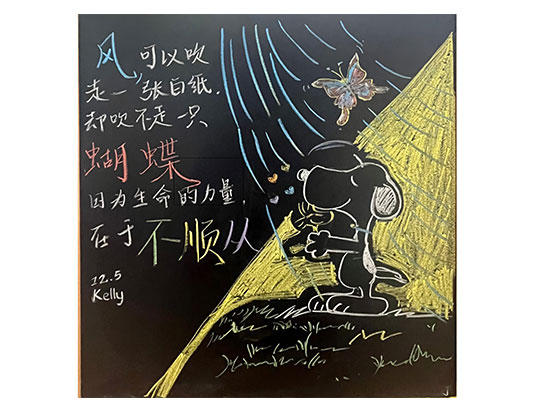 风可以吹
走一张白纸.
却吹不走一只
蝴蝶
因为生命的力量,
在于不顺从
12.5
Kelly